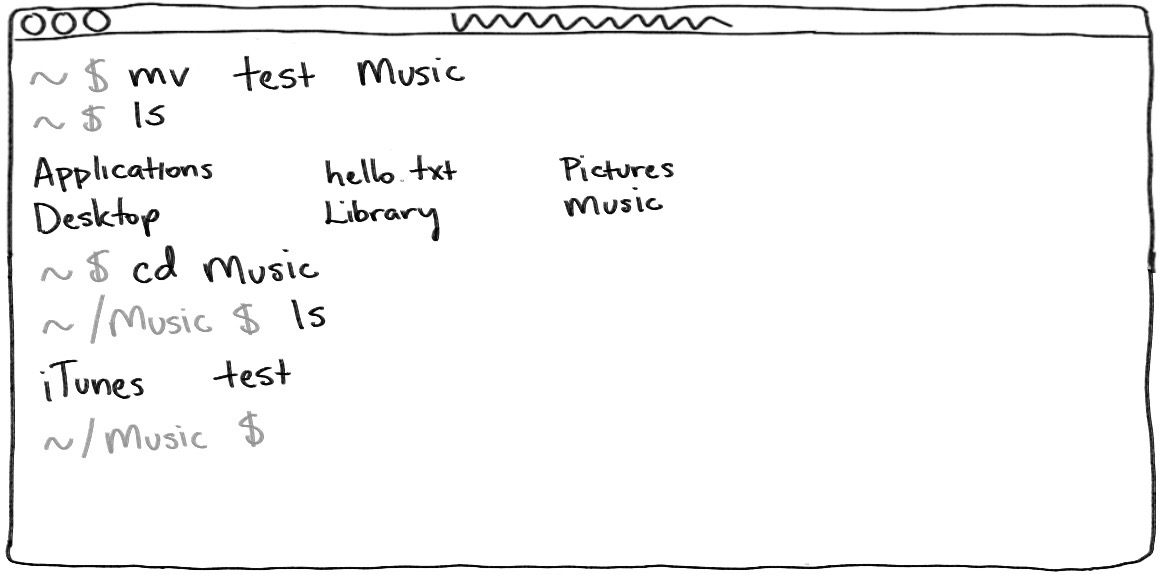 ~ $ mv test Music
~ $ ls
Applications hello.txt Pictures
Desktop Library Music
~ $ cd Music
~/Music $ ls
iTunes test
~/Music $